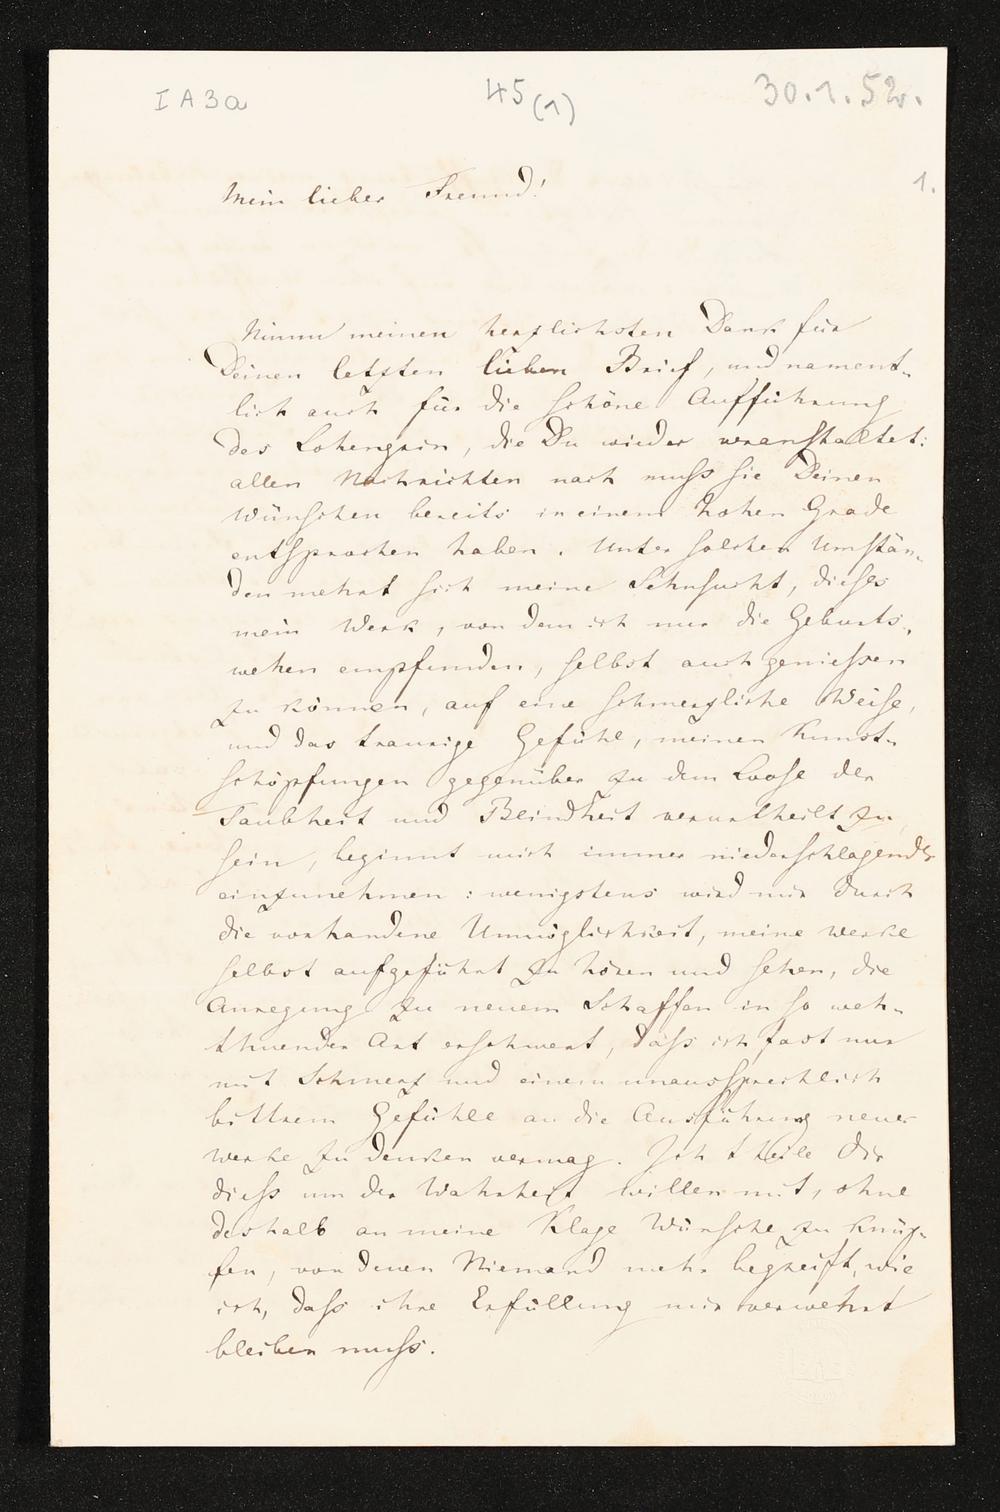 I A 3 a
45 (1)
30.1.52.
1.
Mein lieber Freund!
Nimm meinen herzlichsten Dank für
Deinen letzten lieben Brief, und nament-
lich auch für die schöne Aufführung
des Lohengrin, die Du wieder veranstaltet:
allen Nachrichten nach muss sie Deinen
Wünschen bereits in einem hohen Grade
entsprochen haben. Unter solchen Umstän-
den mehrt sich meine Sehnsucht, dieses
mein Werk, von dem ich nur die Geburts-
wehen empfunden, selbst auch geniessen
zu können, auf eine schmerzliche Weise,
und das traurige Gefühl, meinen Kunst-
schöpfungen gegenüber zu dem Loose der
Taubheit und Blindheit verurtheilt zu
sein, beginnt mich immer niederschlagender
einzunehmen: wenigstens wird mir durch
die vorhandene Unmöglichkeit, meine Werke
selbst aufgeführt zu hören und sehen, die
Anregung zu neuem Schaffen in so weh-
thuender Art erschwert, dass ich fast nur
mit Schmerz und einem unaussprechlich
bittrem Gefühle an die Ausführung neuer
Werke zu denken vermag. Ich theile Dir
diess um der Wahrheit willen mit, ohne
deshalb an meine Klage Wünsche zu knüp-
fen, von denen Niemand mehr begreift, wie
ich, dass ihre Erfüllung mir verwehrt
bleiben muss.